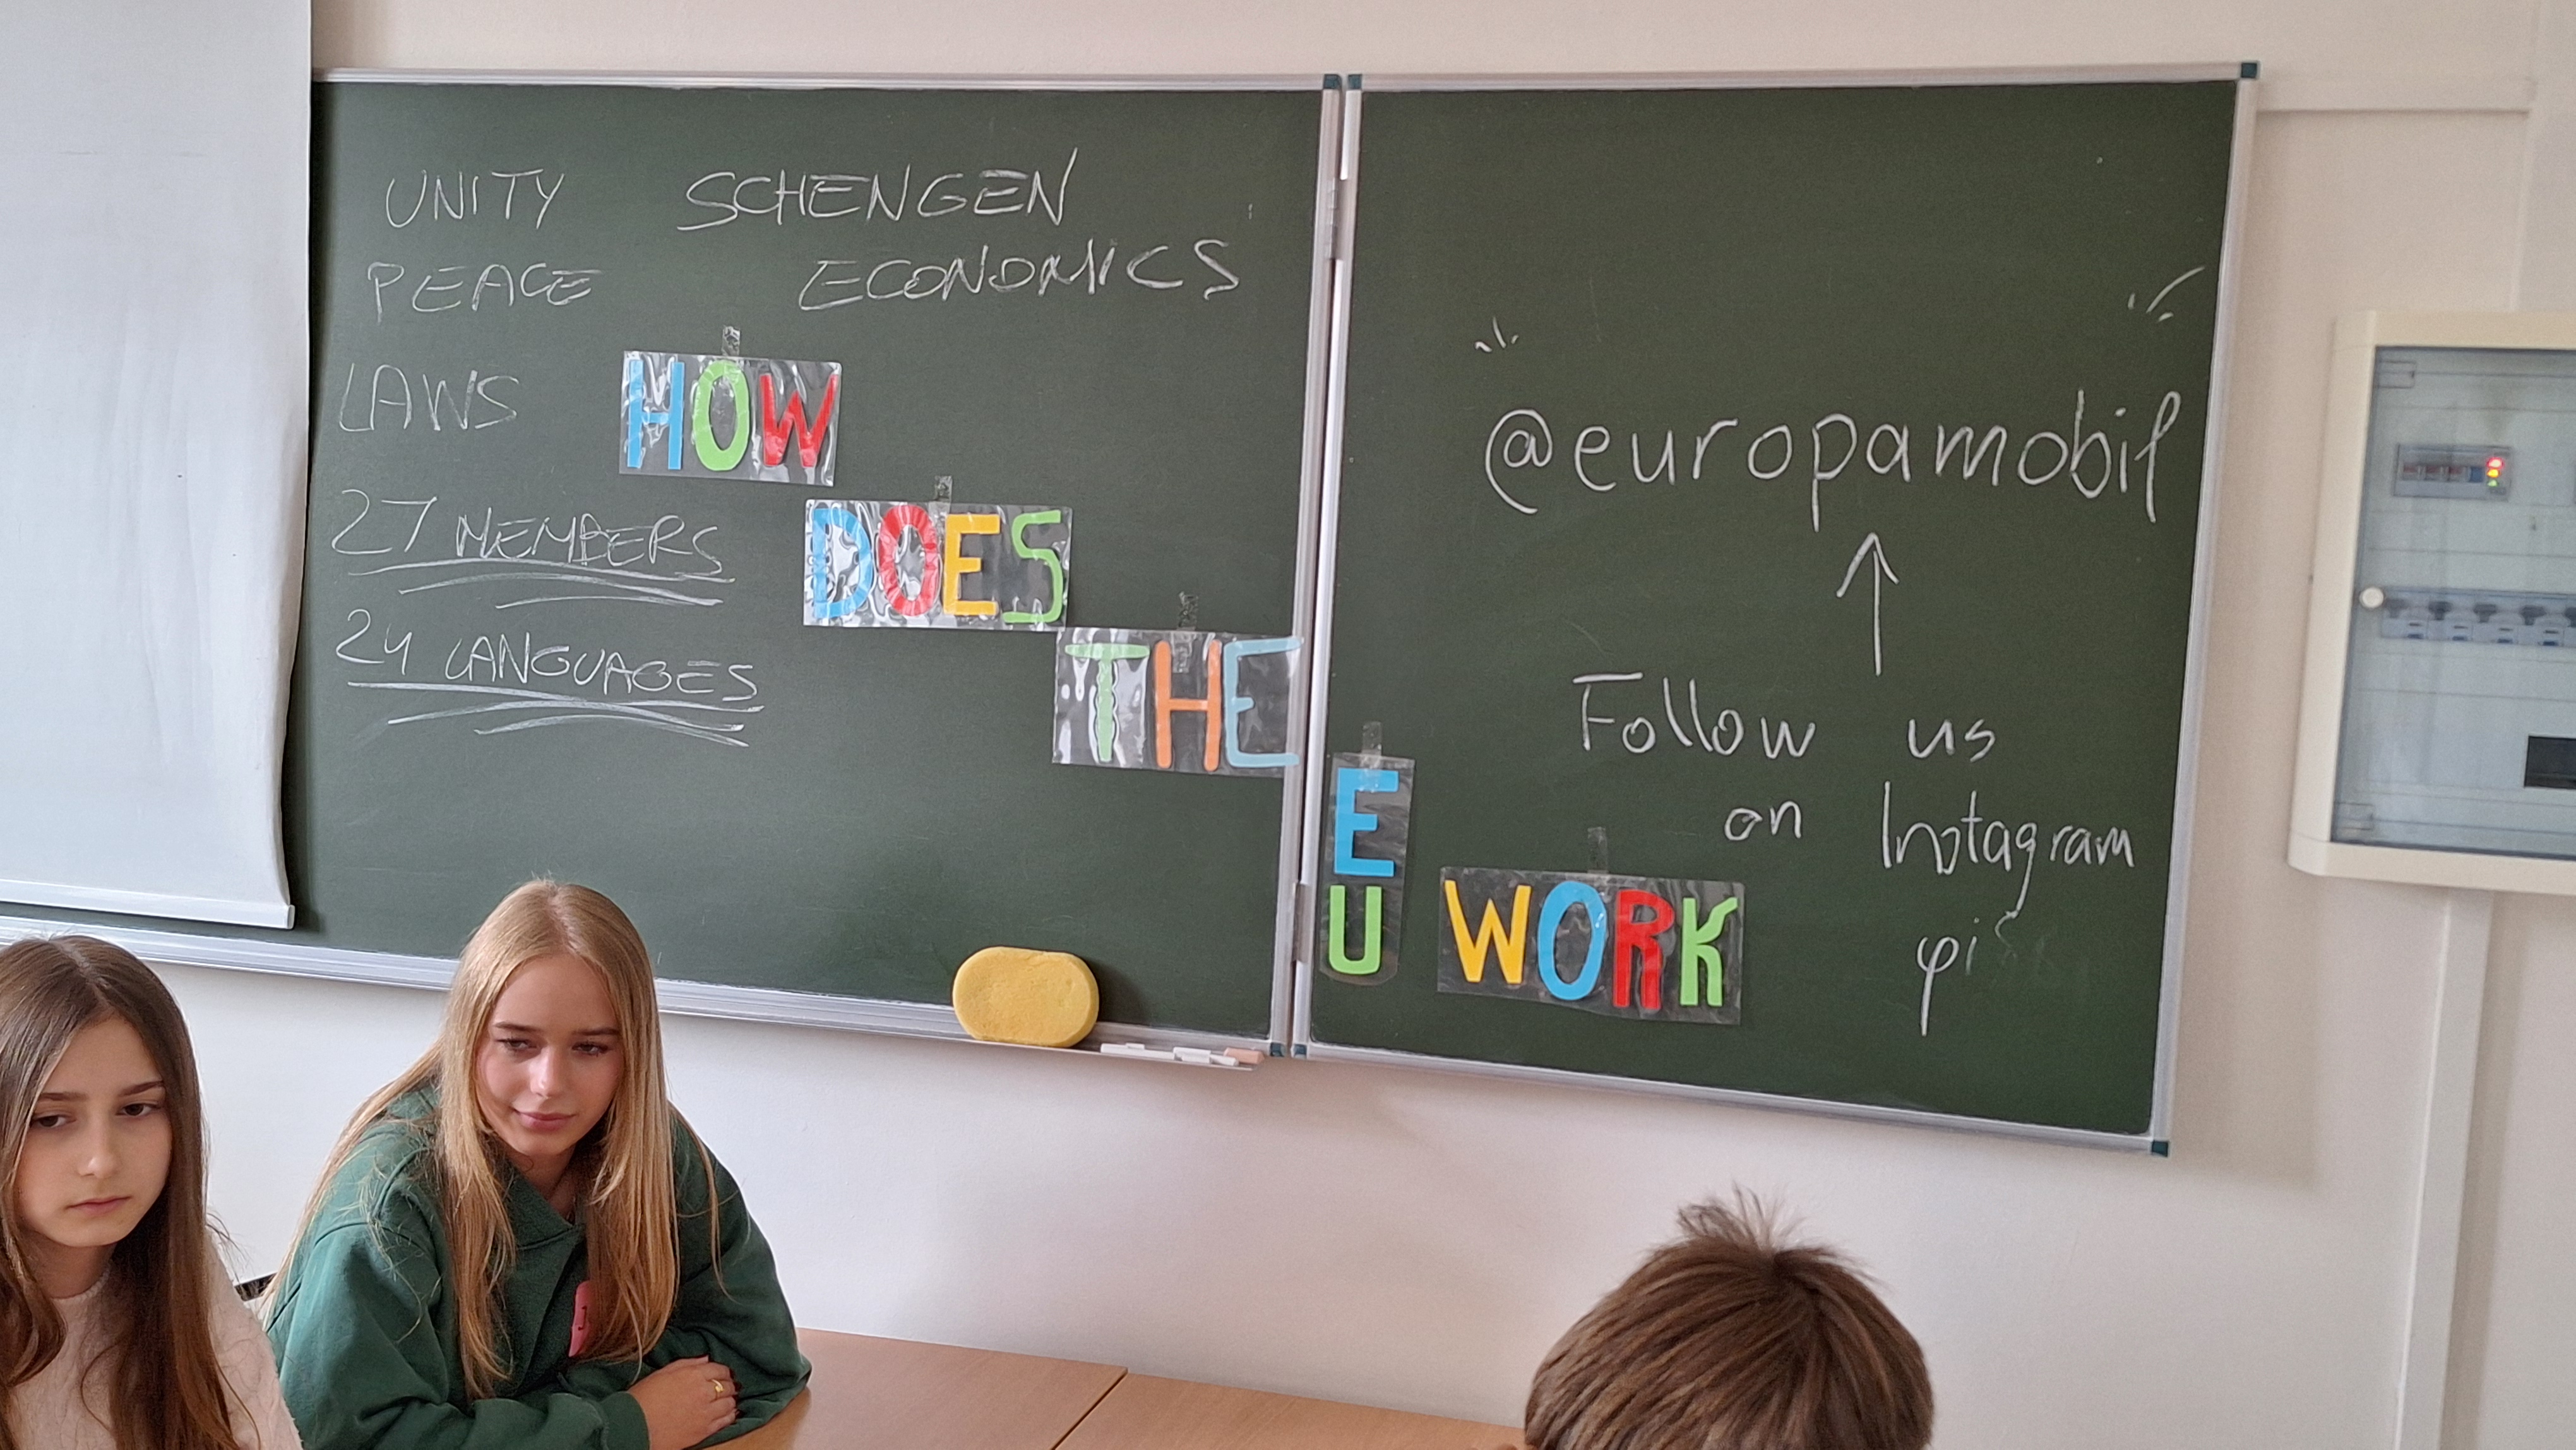 UNITY SCHENGEN
PEACE ECONOMICS
LAWS
27 MEMBERS
24 LANGUAGES
HOW
DOES
THE
EU
WORK
@europamobil
Follow us
on Instagram